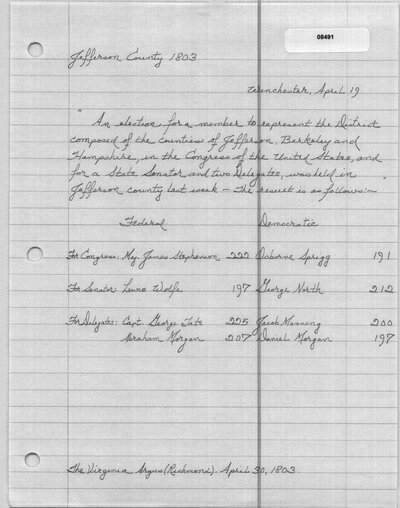 08491
Jefferson County 1803
Winchester, April 19
"An election for a member to represent the District
composed of the counties of Jefferson, Berkeley and
Hampshire, in the Congress of the United States, and
for a State Senator and two Delegates, was held in
Jefferson county last week — The result is as follows:— "
Federal Democratic
For Congress: Maj. James Stephenson 222 Osborne Sprigg 191
For Senator: Lewis Wolfe 197 George North 212
For Delegates: Capt. George Tate 225 Jacob Manning 200
Abraham Morgan 207 Daniel Morgan 197
The Virginia Argus (Richmond). April 30, 1803.